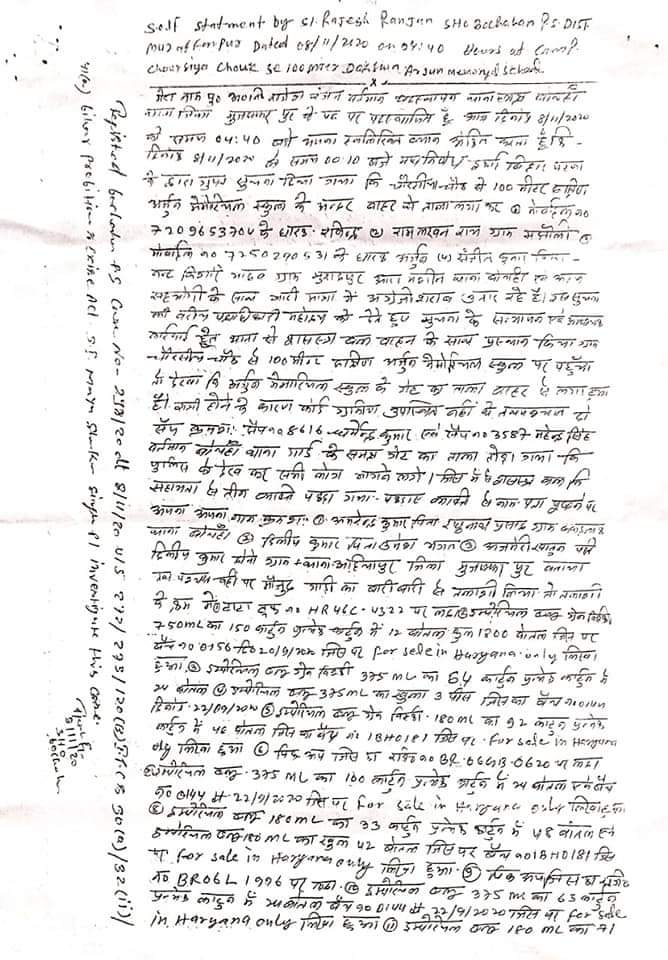 Self Statment by SI. Rajesh Ranjan SHO Bochahan P.S. DIST
Muzaffarpur Dated 08/11/2020 on 04:40 Hours at Camp.
Chourasiya Chouk se 100 meter Dakshin Arjun Memoryal School
मेरा नाम पु० अ०नि० राजेश रंजन वर्तमान पदस्थापन थानाध्यक्ष बोचहाँ
जिला मुजफ्फरपुर के पद पर पदस्थापित हूँ आज दिनांक 8/11/2020
को समय 04:40 बजे अपना स्वलिखित ब्यान अंकित करता हूँ कि
दिनांक 8/11/2020 को समय 00:10 बजे मद्यनिषेध इकाई बिहार पटना
के द्वारा गुप्त सूचना दिया गया कि चौरसिया चौक से 100 मीटर दक्षिण
अर्जुन मेमोरियल स्कूल के अन्दर बाहर से ताला लगा कर ① मोबाईल न०
7209653704 के धारक ② राम लखन राय ग्राम ③
मोबाईल न० 7250290531 के धारक अर्जुन ④ संजीत कुमार पिता
नन्द किशोर यादव ग्राम मुरादपुर थाना बोचहाँ एवं अन्य
सहयोगी के साथ भारी मात्रा में अंग्रेजी शराब उतार रहे है। उक्त सूचना
को वरीय पदाधिकारी महोदय को देते हुए सूचना के सत्यापन एवं आवश्यक
कार्रवाई हेतु थाना से सशस्त्र बल वाहन के साथ प्रस्थान किया गया
चौरसिया चौक से 100 मीटर दक्षिण अर्जुन मेमोरियल स्कूल पर पहुँचा
तो देखा कि अर्जुन मेमोरियल स्कूल के गेट का ताला बाहर से लगा हुआ
है। रात्री होने के कारण कोई ग्रामीण उपस्थित नहीं थे तत्पश्चात दो
सैप क्रमशः सैप न० 8616 धर्मेन्द्र कुमार एवं सैप न० 3587 महेन्द्र सिंह
वर्तमान बोचहाँ थाना गार्ड के समक्ष गेट का ताला तोड़ा गया कि
पुलिस को देख कर सभी लोग भागने लगे। जिसमें से सशस्त्र बल कि
सहायता से तीन व्यक्ति पकड़ा गया। पकड़ाए व्यक्ति से नाम पता पूछने पर
अपना अपना नाम क्रमशः ① अमरेन्द्र कुमार पिता रघुनाथ प्रसाद ग्राम
थाना बोचहाँ ② दिलीप कुमार पिता उमेश भगत ③ पति
दिलीप कुमार दोनो ग्राम + थाना अहियापुर जिला मुजफ्फरपुर बताया
तत्पश्चात वहीं पर मौजूद गाड़ी का बारी बारी से तलाशी लिया तो तलाशी
के क्रम में ट्रक न० HR46C-4322 पर लदा ① इम्पेरियल ब्लू
750ML का 150 कार्टून प्रत्येक कार्टून में 12 बोतल कुल 1800 बोतल जिस पर
बैच न० 0156 दि० 20/9/2020 जिस पर For sale in Haryana only लिखा
हुआ. ③ इम्पेरियल ब्लू ग्रेन विस्की 375 ML का 64 कार्टून प्रत्येक कार्टून में
24 बोतल ④ इम्पेरियल ब्लू 375ML का खुला 3 पीस जिस का बैच न०
दिनांक 22/09/2020 ⑤ इम्पेरियल ब्लू ग्रेन विस्की 180ML का 92 कार्टून प्रत्येक
कार्टून में 48 बोतल जिस का बैच न० 1BH0181 जिस पर For sale in Haryana
only लिखा हुआ ⑥ पिक अप जिस का न० BR-06GB-0620 पर लदा
इम्पेरियल ब्लू 375 ML का 100 कार्टून प्रत्येक कार्टून में 24 बोतल बैच
न० 0144 dt 22/9/2020 जिस पर For sale in Haryana only लिखा हुआ
⑧ इम्पेरियल ब्लू 180ML का 33 कार्टून प्रत्येक कार्टून में 48 बोतल एवं
इम्पेरियल ब्लू 180 ML का खुला 42 बोतल जिस पर बैच न० 1BH0181 जिस
पर For sale in Haryana only लिखा हुआ. ⑨ पिक अप जिस का
न० BR06L 1996 पर लदा. ⑩ इम्पेरियल ब्लू 375 ML का 63 कार्टून
प्रत्येक कार्टून में 24 बोतल बैच न० 0144 dt 22/9/2020 जिस पर For sale
in Haryana only लिखा हुआ ⑪ इम्पेरियल ब्लू 180 ML का 71
Registered Bochahan P.S. Case No- 298/20 dt 8/11/20 u/s 272/273/120(B) IPC & 30(a)/32(ii)/
41(a) Bihar prohibition & Excise Act. S.I. Maya Shankar Singh P.I investigate this case.
8/11/20
SHO
Bochahan